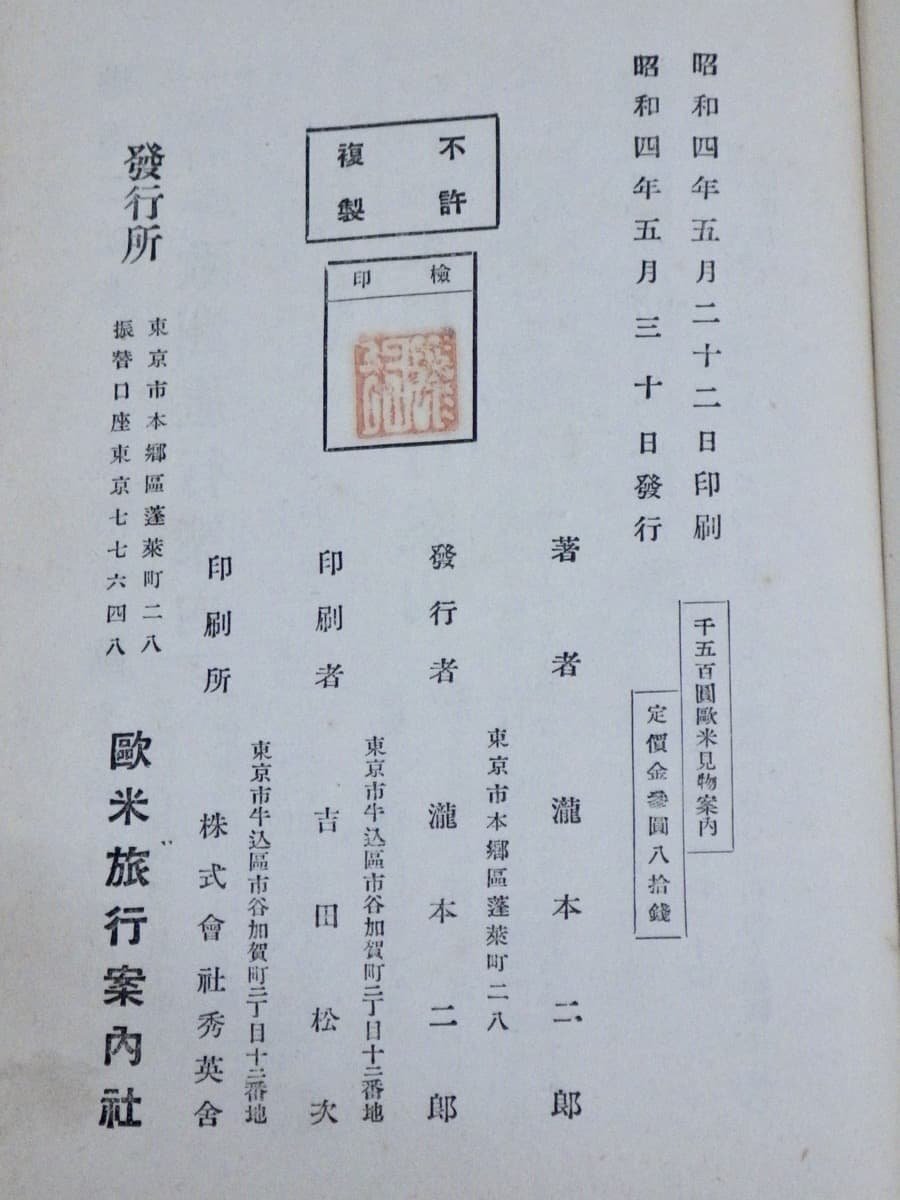 昭和四年五月二十二日印刷
昭和四年五月三十日發行
千五百圓歐米見物案內
定價金參圓八拾錢
不許
複製
檢印
著者 瀧本二郎
東京市本鄕區蓬萊町二八
發行者 瀧本二郎
東京市牛込區市谷加賀町二丁目十二番地
印刷者 吉田松次
東京市牛込區市谷加賀町二丁目十二番地
印刷所 株式會社秀英舍
發行所
東京市本鄕區蓬萊町二八
振替口座東京七七六四八
歐米旅行案內社